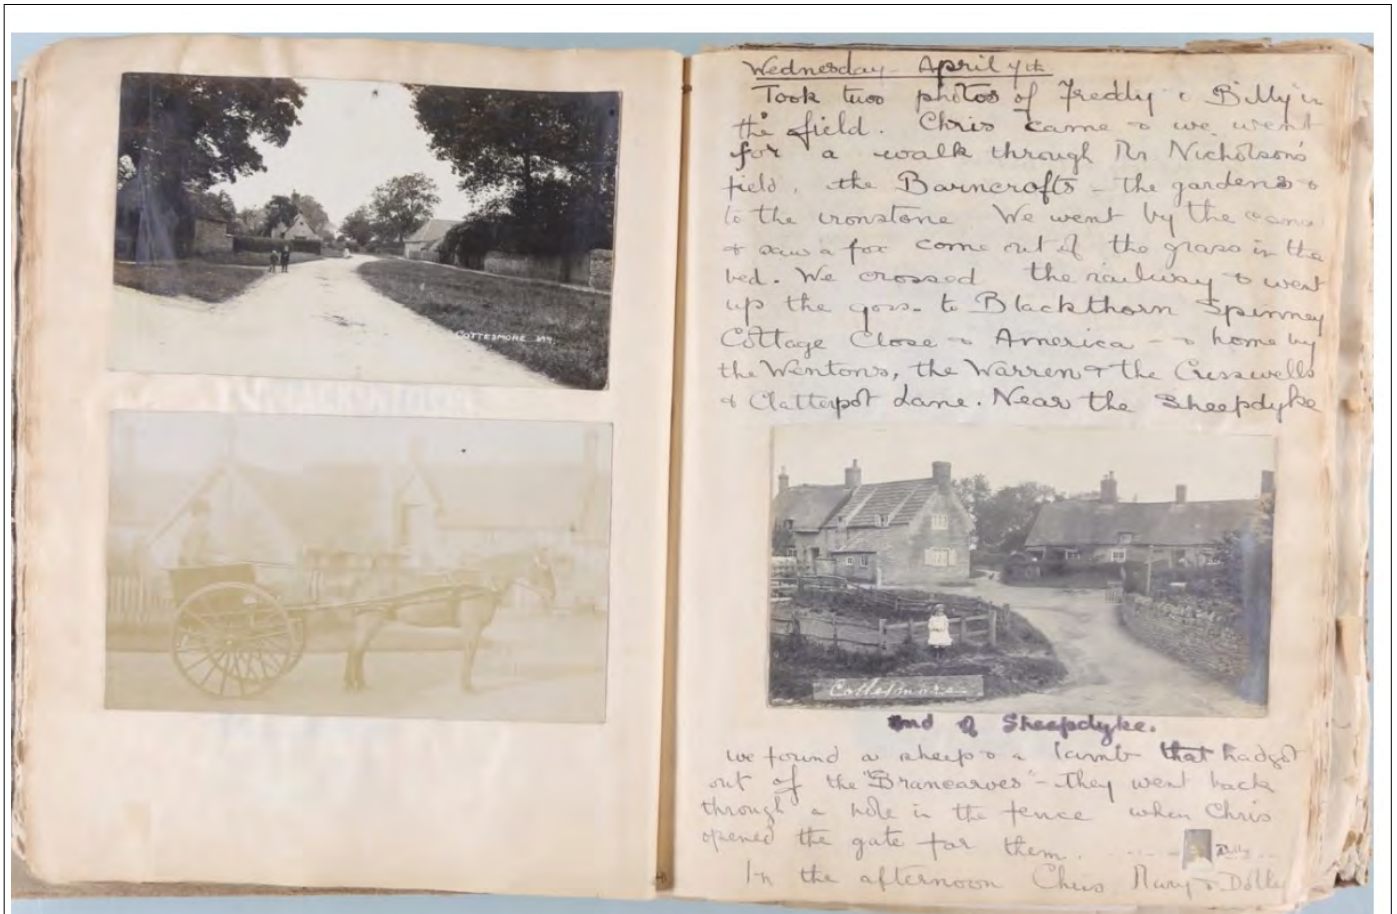 COTTESMORE
Wednesday April 7th
Took two photos of Freddy & Billy in
the field. Chris came & we went
for a walk through Mr Nicholson's
field, the Barncrofts - the gardens &
to the ironstone We went by the
& saw a fox come out of the grass in the
bed. We crossed the railway & went
up the to Blackthorn Spinney
Cottage Close & America - & home by
the Wentons, the Warren & the Cresswells
& Clattapot Lane. Near the Sheepdyke
Cottesmore
End of Sheepdyke.
we found a sheep & a lamb that had got
out of the "Brancarves" - they went back
through a hole in the fence when Chris
opened the gate for them.
In the afternoon Chris Mary & Dolly